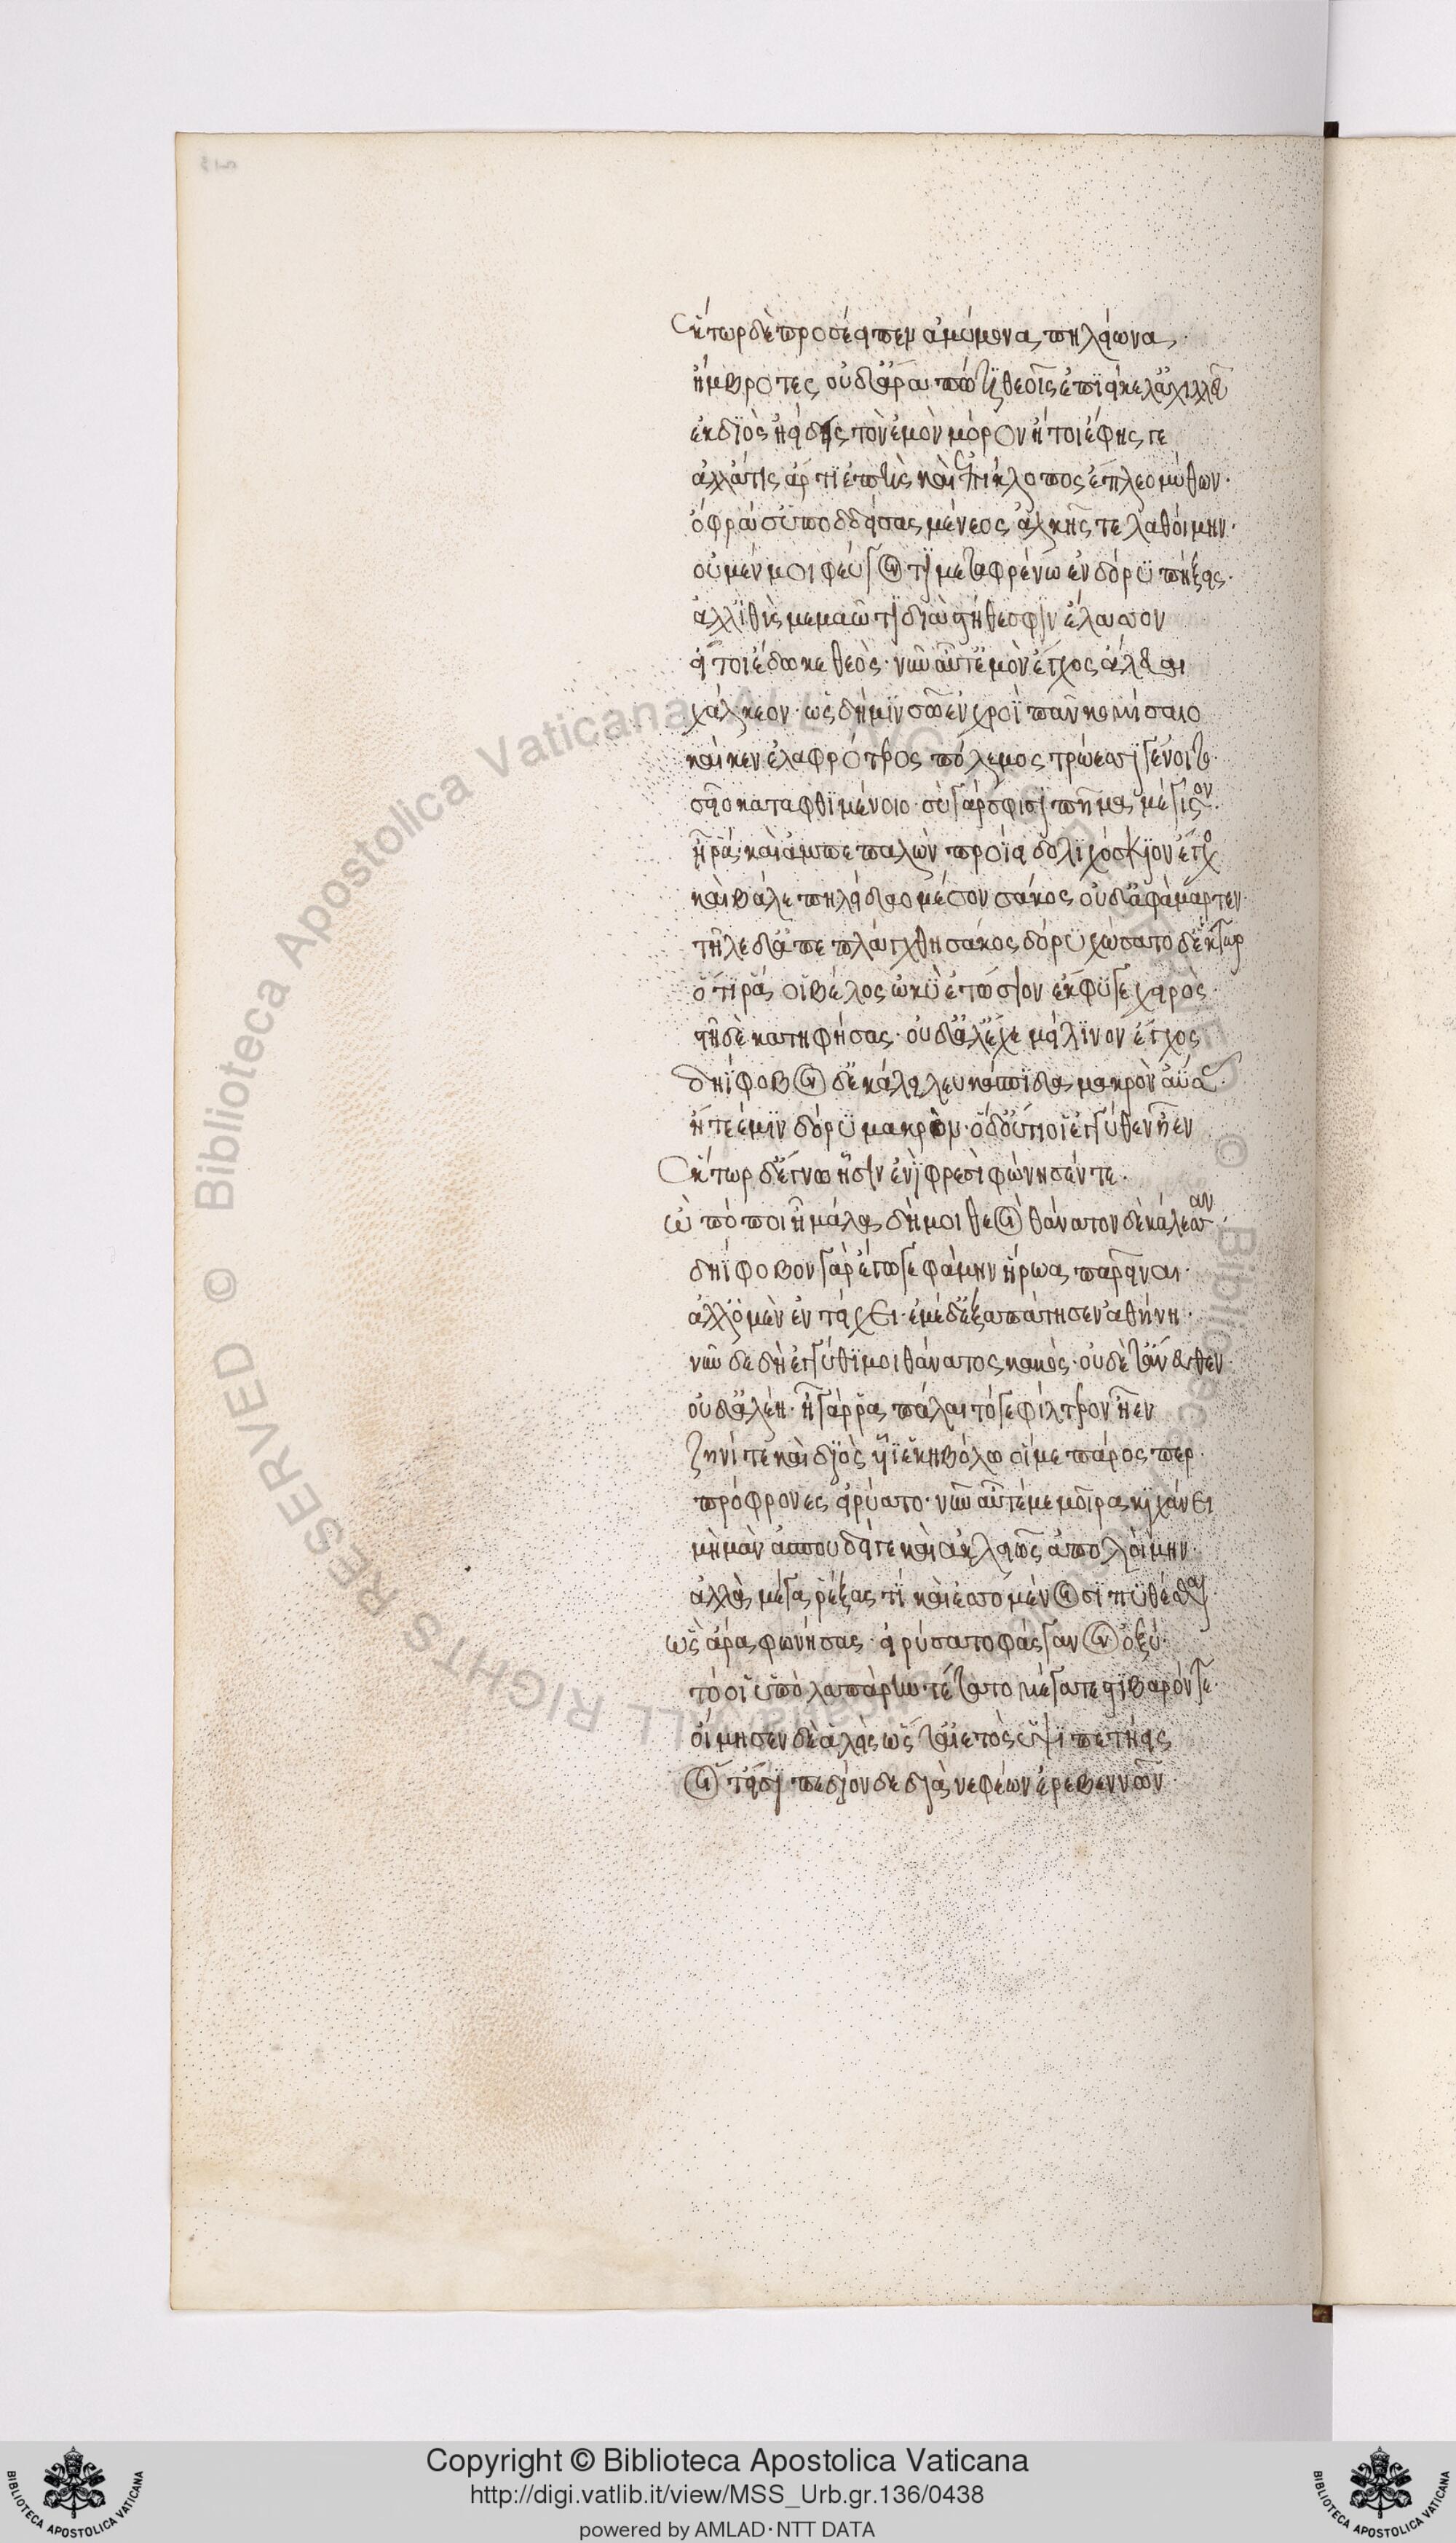 Ἕκτωρ δὲ προσέειπεν ἀμύμονα πηλείωνα·
ἤμβροτες, οὐδ' ἄρα πώ τι θεοῖς ἐπιείκελ' ἀχιλλεῦ
ἐκ διὸς ἠείδης τὸν ἐμὸν μόρον ἤτοι ἔφης γε
ἀλλά τις ἀρτιεπὴς καὶ ἐπίκλοπος ἔπλεο μύθων·
ὄφρά σ' ὑποδδείσας μένεος ἀλκῆς τε λάθοιμην·
οὐ μέν μοι φεύγοντι μεταφρένω ἐν δόρυ πήξεις·
ἀλλ' ἰθὺς μεμαῶτι διὰ στήθεσφιν ἔλασσον
εἴ τοι ἔδωκε θεός· νῦν αὖτ' ἐμὸν ἔγχος ἄλευαι
χάλκεον· ὡς δή μιν σῶ ἐν χροῒ πᾶν κομίσαιο
καί κεν ἐλαφρότερος πόλεμος τρώεσσι γένοιτο·
σεῖο καταφθιμένοιο· σὺ γάρ σφισι πῆμα μέγιστον·
ἦ ῥά· καὶ ἀμπεπαλὼν προΐει δολιχόσκιον ἔγχος
καὶ βάλε πηλείδαο μέσον σάκος οὐδ' ἀφάμαρτεν·
τῆλε δ' ἀπεπλάγχθη σάκος δόρυ χώσατο δ' ἕκτωρ
ὅττι ῥά οἱ βέλος ὠκὺ ἐτώσιον ἔκφυγε χειρός·
στῆ δὲ κατηφήσας· οὐδ' ἄλλ' ἔχε μείλινον ἔγχος
δηΐφοβον δ' ἐκάλει λευκάσπιδα μακρὸν ἀΰσας·
ἤτεέ μιν δόρυ μακρὸν· ὁ δ' οὔτι οἱ ἐγγύθεν ἦεν
Ἕκτωρ δ' ἔγνω ᾗσιν ἐνὶ φρεσὶ φώνησέν τε·
ὢ πόποι ἦ μάλα δή με θεοὶ θάνατον δὲ κάλεσσαν·
δηίφοβον γὰρ ἔγωγε φάμην ἥρωα παρεῖναι·
ἀλλ' ὁ μὲν ἐν τείχει· ἐμὲ δ' ἐξαπάτησεν ἀθήνη·
νῦν δε δὴ ἐγγύθι μοι θάνατος κακός· οὐδὲ τ' ἄνευθεν·
οὐδ' ἀλέη· ἦ γάρ ῥα πάλαι τό γε φίλτερον ἦεν
ζηνί τε καὶ διὸς υἱῒ ἑκηβόλω οἵ με πάρος περ·
πρόφρονες εἰρύατο· νῦν αὖτέ με μοῖρα κιχάνει
μὴ μὰν ἀσπουδεί γε καὶ ἀκλειῶς ἀπολοίμην·
ἀλλὰ μέγα ῥέξας τί καὶ ἐσσομένοισι πυθέσθαι·
ὣς ἄρα φωνήσας· εἰρύσατο φάσγανον ὀξύ·
τό οἱ ὑπὸ λαπάρην· τέτατο μέγα τε στιβαρόν τε·
οἴμησεν δὲ ἀλεὶς ὥς τ' αἰετὸς ὑψιπετήεις
ὅς τ' εἶσι πεδίονδε διὰ νεφέων ἐρεβεννῶν
Copyright © Biblioteca Apostolica Vaticana
http://digi.vatlib.it/view/MSS_Urb.gr.136/0438
powered by AMLAD·NTT DATA